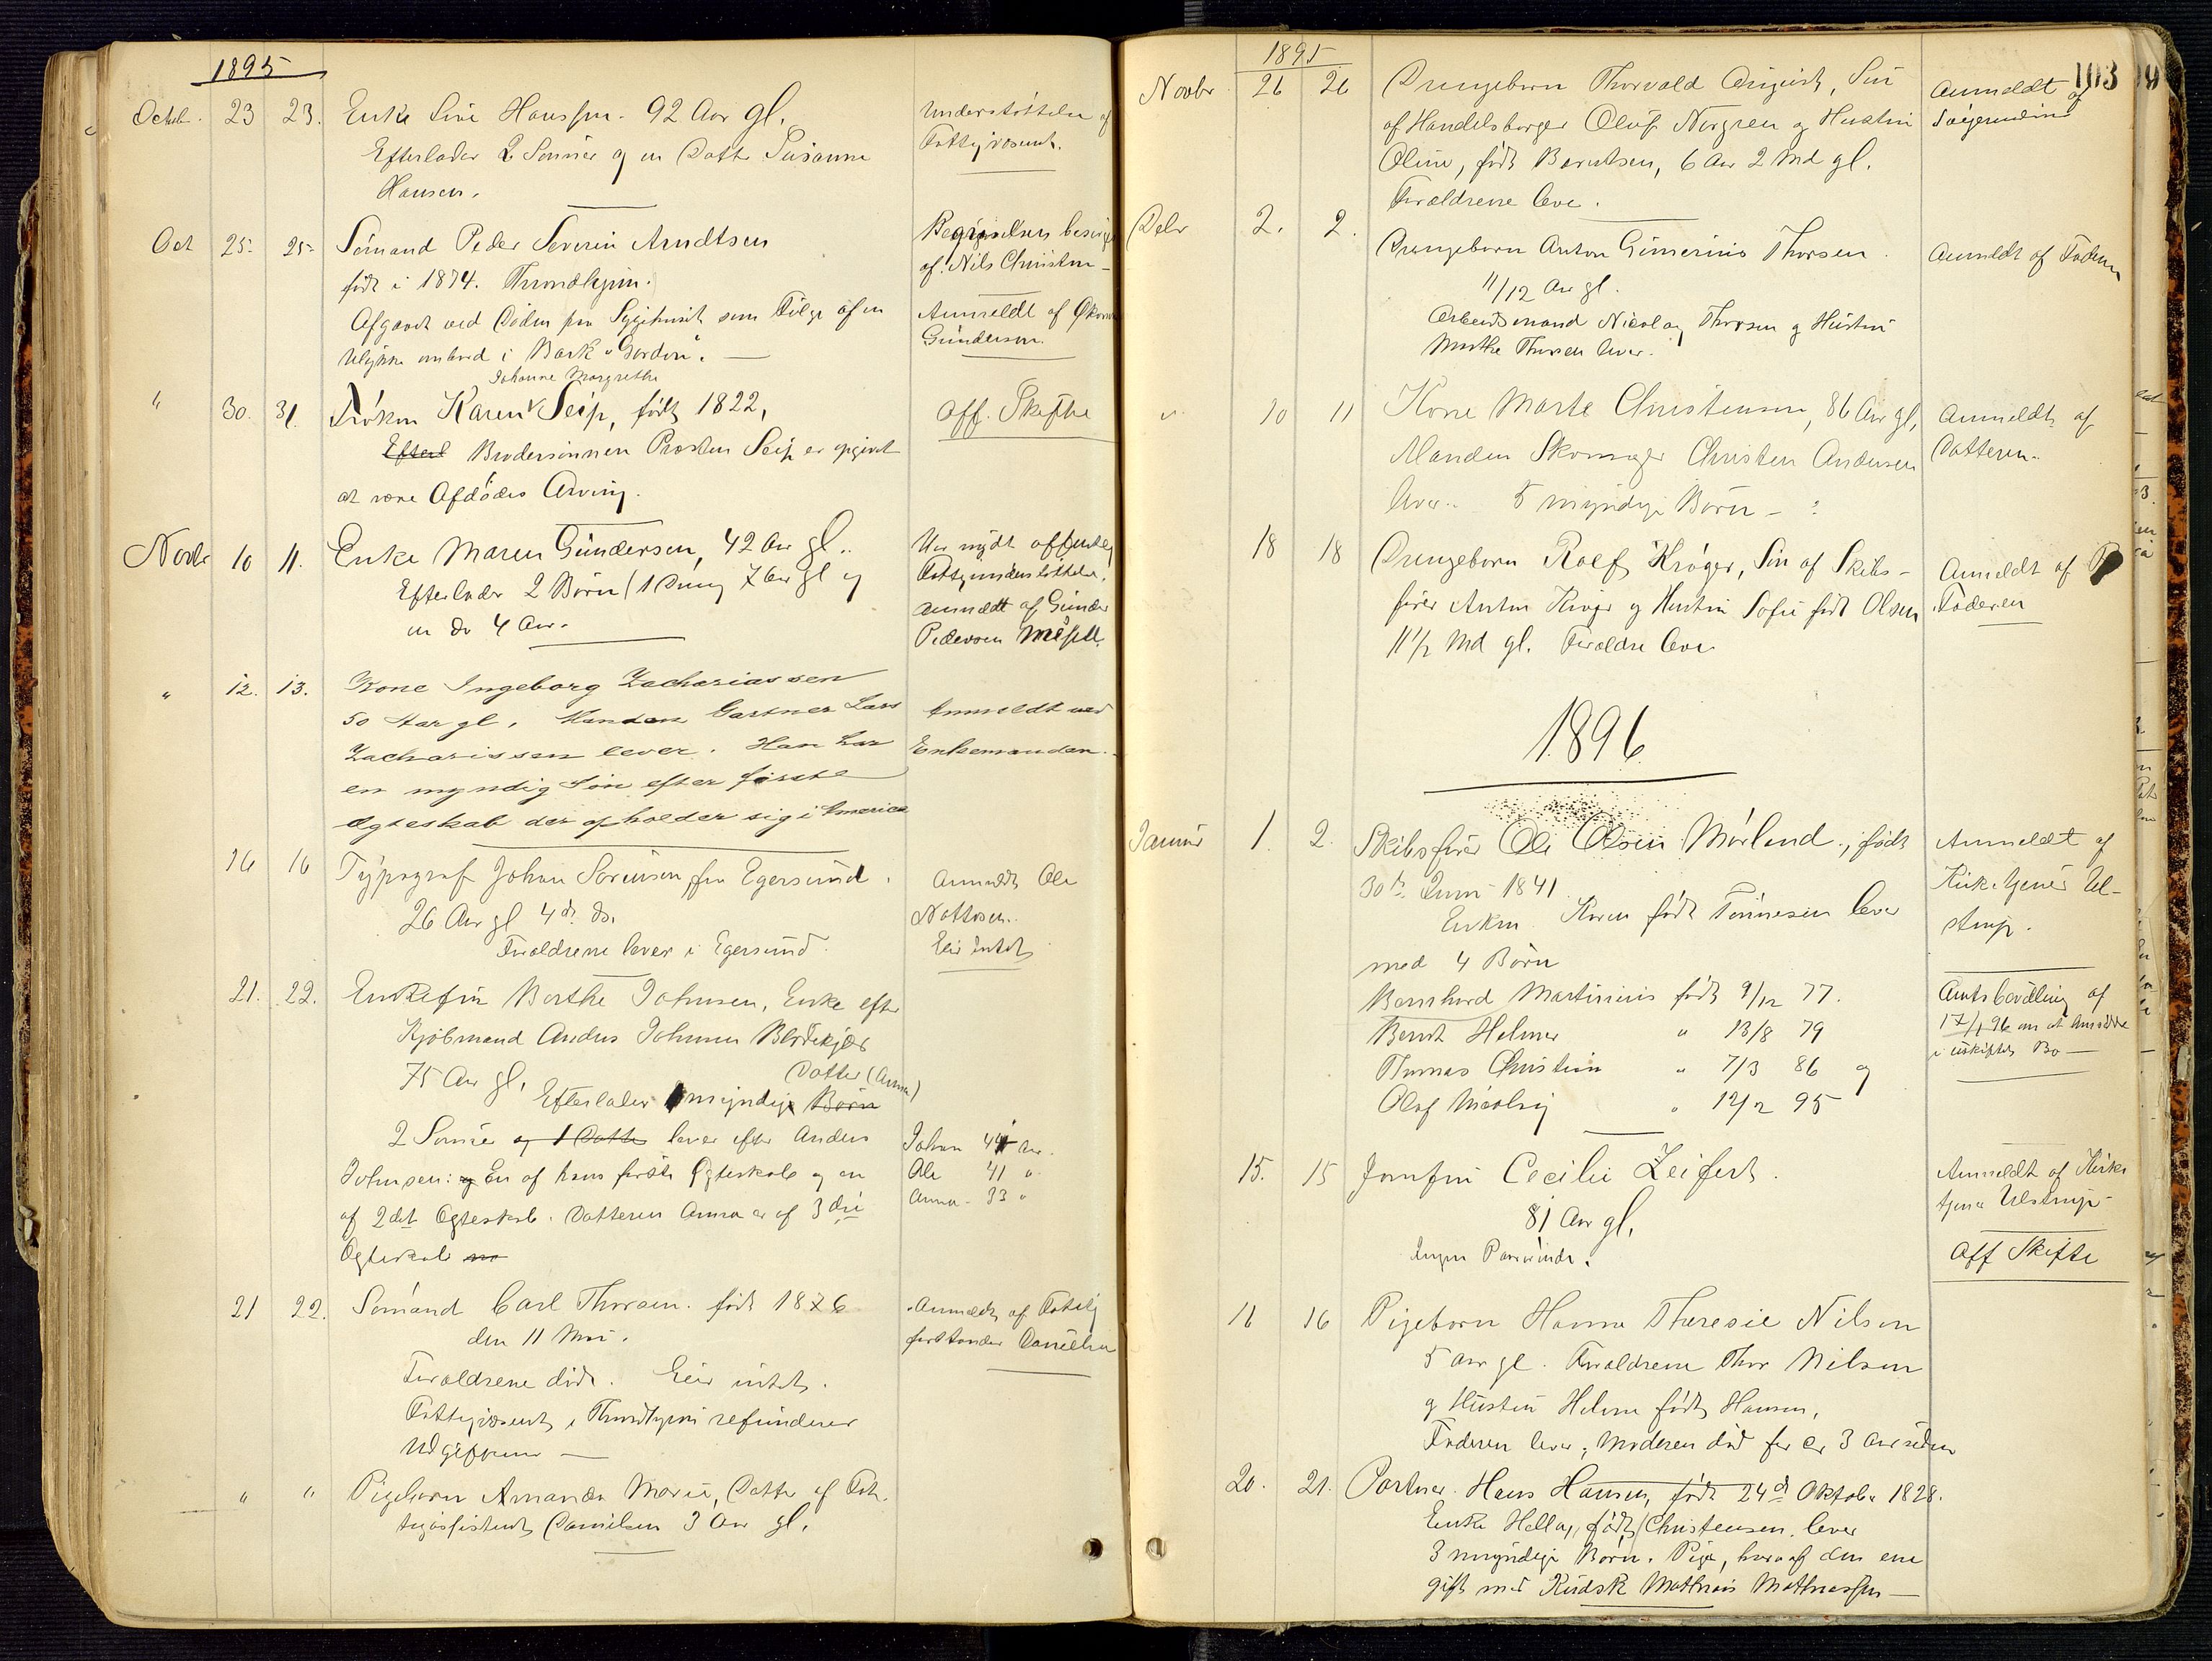 1895
Octob. 23 23. Enke Sine Hanssen. 92 Aar gl. Understøttelse af
Efterlader 2 Sønner og en Datter Susanne Fattigvæsenet.
Hansen.
Oct 25. 25. Sømand Peder Severin Arndtsen Begravelsen besørget
født i 1874. Throndhjem. af Nils Christen-
Afgaaet ved Døden paa Sygehuset som Følge af en Anmeldt af Økonom
Ulykke ombord i Bark "Gordon". — Gundersen.
Johanne Margrethe
" 30. 31. Frøken Karen Seip, født 1822, Off. Skifte
Efterl Brodersønnen Provsten Seip er opgivet
at være Afdødes Arving.
Novbr 10 11. Enke Maren Gundersen, 42 Aar gl. Har nydt offentlig
Efterlader 2 Børn (1 Dreng 7 Aar gl og Fattigunderstøttelse.
en do 4 Aar. Anmeldt af Gunder
Pedersen
" 12. 13. Kone Ingeborg Zachariassen
50 Aar gl. Manden Gartner Lars Anmeldt ved
Zacharissen lever. Han har Enkemanden.
en myndig Søn efter første
Ægteskab der opholder sig i America
16 16 Typograf Johan Sørensen fra Egersund. Anmeldt Ole
26 Aar gl 4 ds. Nottosen.
Forældrene lever i Egersund. Eier Intet
21. 22. Enkefru Berthe Johnsen, Enke efter
Kjøbmand Anders Johnsen Blødekjær
75 Aar gl. Datter (Anna)
Efterlader myndige Børn
2 Sønner og 1 Datter lever efter Anders Johan 44 Aar.
Johnsen: og En af hans første Ægteskab og en Ole 41 "
af 2det Ægteskab. Datteren Anna er af 3die Anna 33 "
Ægteskab
21 22. Sømand Carl Thorsen. født 1876 Anmeldt af Fattig
den 11 Mai. forstander Danielsen
Forældrene døde. Eier intet.
Fattigvæsenet i Throndhjem refunderer
Udgifterne —
" " Pigebarn Amanda Marie, Datter af Fat-
tigassistent Danielsen 3 Aar gl.
1895
103
Novbr 26 26 Drengebarn Thorvald August, Søn Anmeldt af
af Handelsborger Oluf Norgren og Hustru Svigerinden
Oline, født Berntsen, 6 Aar 2 Md gl.
Forældrene leve.
Debr 2. 2. Drengebarn Anton Gunerius Thorsen. Anmeldt af Faderen
11/12 Aar gl.
Arbeidsmand Nicolay Thorsen og Hustru
Marthe Thorsen lever.
" 10 11 Kone Marte Christensen, 86 Aar gl, Anmeldt af
Manden Skomager Christen Andersen Datteren.
lever. 5 myndige Børn - ?
18 18 Drengebarn Rolf Krøger, Søn af Skibs- Anmeldt af
fører Anton Krøger og Hustru Sofie født Olsen Faderen
11 1/2 Md gl. Forældre leve
1896
Januar 1. 2. Skibsfører Ole Olsen Mørland, født Anmeldt af
30te Juni 1841. Kirketjener Ul-
Enken Karen født Tønnesen lever strup.
med 4 Børn
Bernhard Martinius født 9/12 77. Amtsbevilling af
Bernt Helmer " 13/8 79 17/1 96 om at hensidde
Thomas Christian " 7/3 86 og i uskiftet Bo —
Olaf Nicolay " 12/2 95
15. 15 Jomfru Cecilie Zeifert. Anmeldt af Kirke
81 Aar gl. tjener Ulstrup
Ingen Paarørende. Off Skifte
11 16 Pigebarn Hanna Theresie Nilsen
5 Aar gl. Forældrene Thor Nilsen
og Hustru Helene født Hansen,
Faderen lever, Moderen død for ca 3 Aar siden
20. 21. Portner Hans Hansen, født 24d Oktober 1828.
Enke født Christensen lever
3 myndige Børn. Piger, hvoraf den ene
gift med Kudsk Mathias Mathiassen —